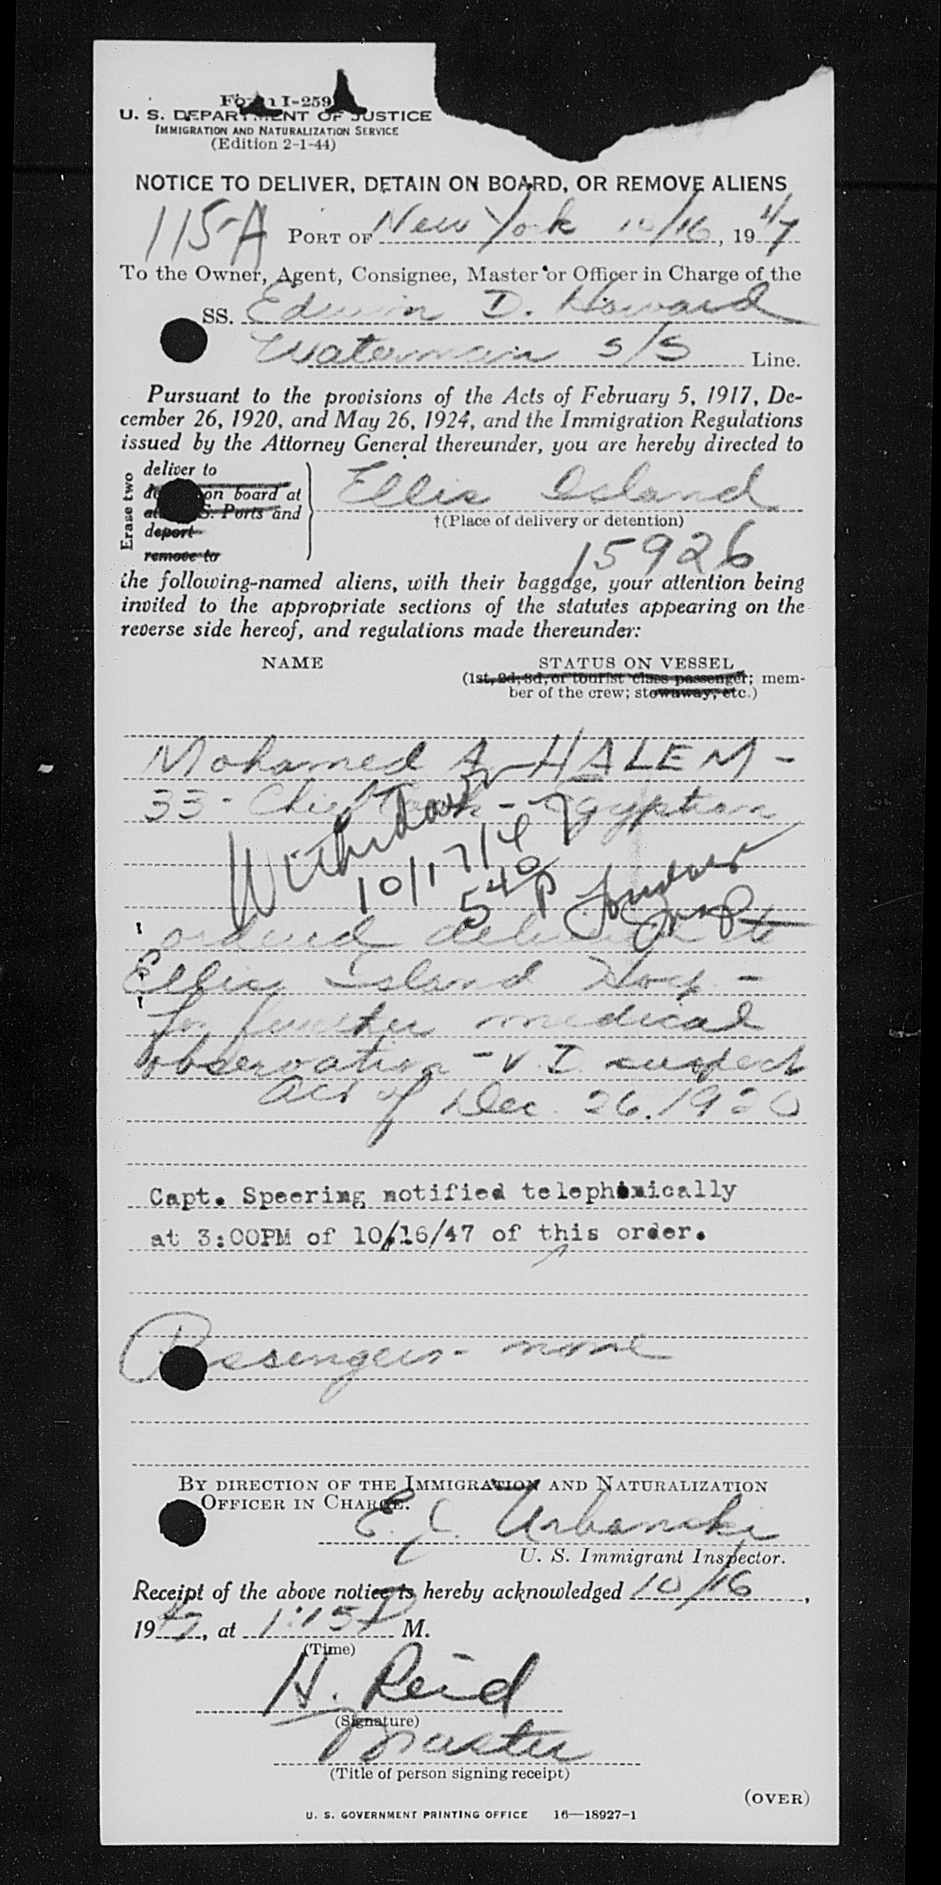 Form I-259
U. S. DEPARTMENT OF JUSTICE
IMMIGRATION AND NATURALIZATION SERVICE
(Edition 2-1-44)
NOTICE TO DELIVER, DETAIN ON BOARD, OR REMOVE ALIENS
115-A
PORT OF New York 10/16, 1947
To the Owner, Agent, Consignee, Master or Officer in Charge of the
SS. Edwin D. Howard
Waterman S/S Line.
Pursuant to the provisions of the Acts of February 5, 1917, De-
cember 26, 1920, and May 26, 1924, and the Immigration Regulations
issued by the Attorney General thereunder, you are hereby directed to
Erase two
deliver to
on board at
S. Ports and
deport
remove to
Ellis Island
†(Place of delivery or detention)
15926
the following-named aliens, with their baggage, your attention being
invited to the appropriate sections of the statutes appearing on the
reverse side hereof, and regulations made thereunder:
NAME
STATUS ON VESSEL
(1st, 2d, 3d, or tourist class passenger; mem-
ber of the crew; stowaway, etc.)
Mohamed A. HALEM -
33 - Chief Cook - Egyptian
Withdrawn
10/17/47
540 P
ordered delivered to
Ellis Island Hosp -
for further medical
observation - V. D. suspect
Act of Dec. 26, 1920
Capt. Speering notified telephonically
at 3:00PM of 10/16/47 of this order.
Passengers - none
BY DIRECTION OF THE IMMIGRATION AND NATURALIZATION
OFFICER IN CHARGE.
E. J. Urbanski
U. S. Immigrant Inspector.
Receipt of the above notice is hereby acknowledged 10/16,
1947, at 1:15 P M.
(Time)
H. Reid
(Signature)
Master
(Title of person signing receipt)
(OVER)
U. S. GOVERNMENT PRINTING OFFICE 16—18927-1